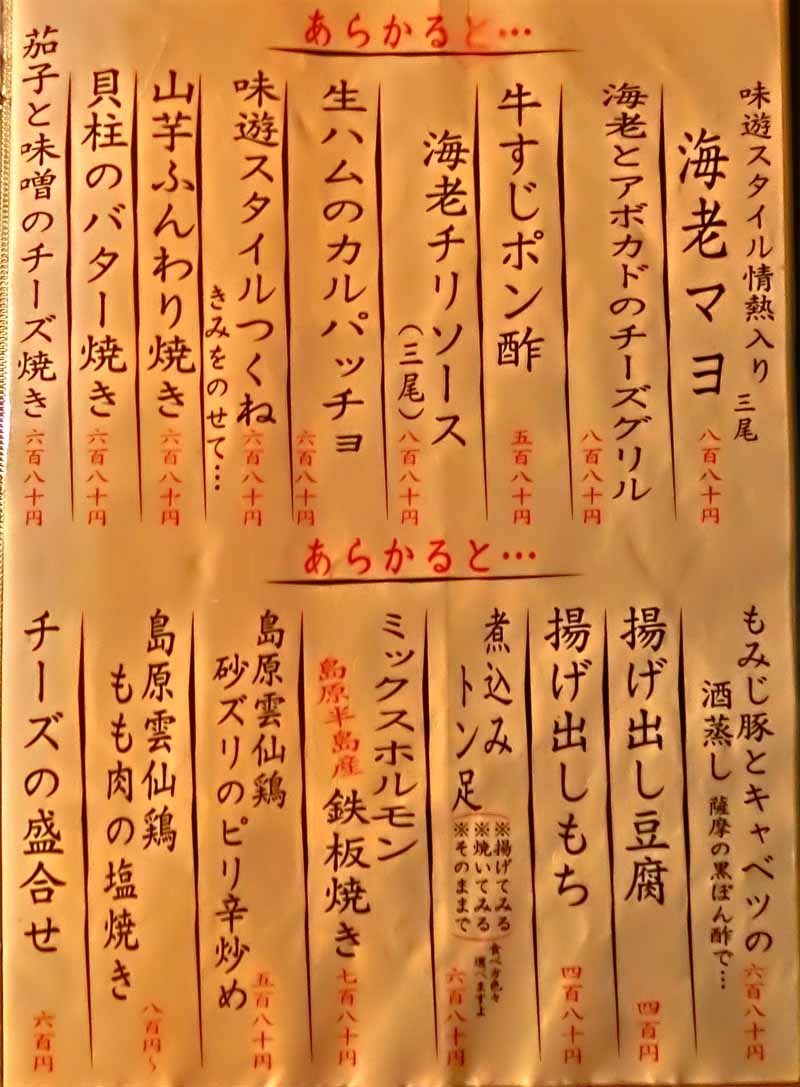 あらかると…
味遊スタイル情熱入り
海老マヨ
三尾
八百八十円
海老とアボカドのチーズグリル
八百八十円
牛すじポン酢
五百八十円
海老チリソース
(三尾)
八百八十円
生ハムのカルパッチョ
六百八十円
味遊スタイルつくね
きみをのせて…
六百八十円
山芋ふんわり焼き
六百八十円
貝柱のバター焼き
六百八十円
茄子と味噌のチーズ焼き
六百八十円
あらかると…
もみじ豚とキャベツの
酒蒸し
薩摩の黒ぽん酢で…
六百八十円
揚げ出し豆腐
四百円
揚げ出しもち
四百八十円
煮込み
トン足
※揚げてみる
※焼いてみる
※そのままで
食べ方色々
選べますよ
六百八十円
ミックスホルモン
島原半島産
鉄板焼き
七百八十円
島原雲仙鶏
砂ズリのピリ辛炒め
五百八十円
島原雲仙鶏
もも肉の塩焼き
八百円〜
チーズの盛合せ
六百円